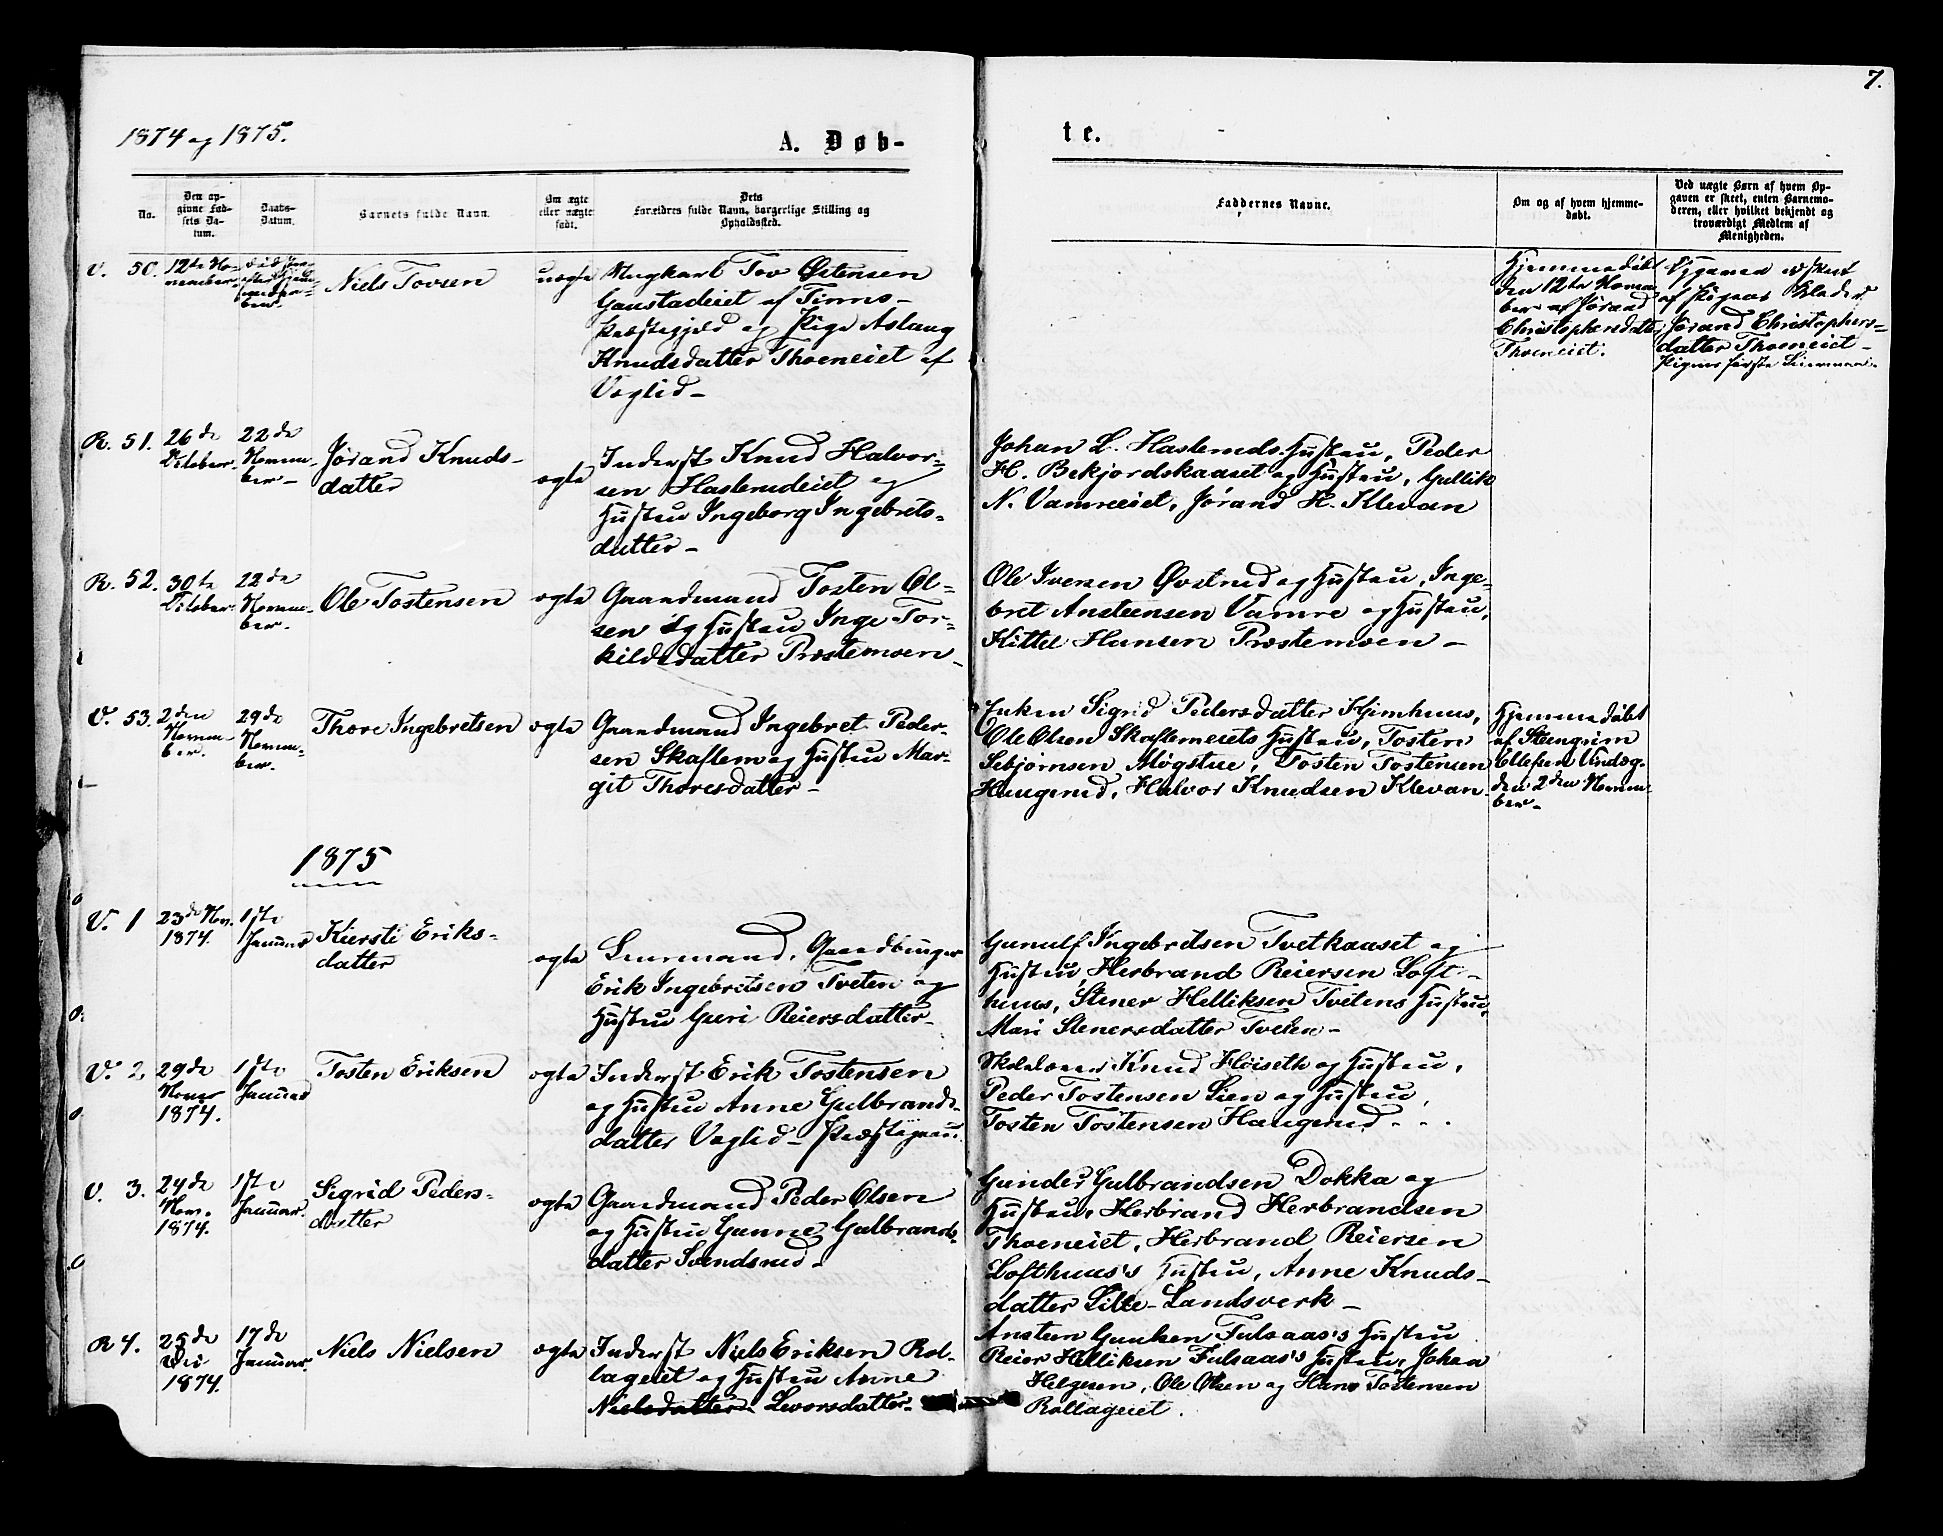 7.
1874 og 1875.
A. Døb-
te.
No.
Den op-
givne Fød-
sels Da-
tum.
Daabs-
Datum.
Barnets fulde Navn.
Om ægte
eller uægte
født.
Dets
Forældres fulde Navn, borgerlige Stilling og
Opholdssted.
Faddernes Navne.
Om og af hvem hjemme-
døbt.
Ved uægte Børn af hvem Op-
gaven er skeet, enten Barnemo-
deren, eller hvilket bekjendt og
troværdigt Medlem af
Menigheden.
V. 50.
12te No-
vember.
Niels Tovsen
uægte
Ungkarl Tov Østensen
Gaustadeiet af Tinns
Præstegjeld og Pige Aslaug
Knudsdatter Thoeneiet af
Veglid –
Hjemmedøbt
den 12te Novem-
ber af Jørand
Christophersdatter
Thoeneiet.
Opgaven er skeet
af Pigens Moder
Jørand Christophers-
datter Thoeneiet –
Pigens første Leiermaal.
R. 51.
26de
October.
22de
Novem-
ber –
Jørand Knuds-
datter
ægte
Inderst Knud Halvor-
sen Haslemdeiet og
Hustru Ingeborg Ingebrets-
datter –
Johan L. Haslemds Hustru, Peder
H. Bekjordskaaset og Hustru, Gullik
N. Vamreeiet, Jørand K. Klevan
R. 52.
30te
October.
22de
Novem-
ber.
Ole Tostensen
ægte
Gaardmand Tosten Ol-
sen og Hustru Inge Tor-
kildsdatter Prestemoen –
Ole Iversen Øvstrud og Hustru, Inge-
bret Ansteensen Vamre og Hustru,
Kittel Hansen Prestemoen –
V. 53.
2den
Novem-
ber.
29de
Novem-
ber.
Thore Ingebretsen
ægte
Gaardmand Ingebret Peder-
sen Skaflem og Hustru Mar-
git Thoresdatter –
Enken Sigrid Pedersdatter Kjemhuus,
Ole Olsen Skaflemeiets Hustru, Tosten
Sebjørnsen Møgstue, Tosten Tostensen
Haugerud, Halvor Knudsen Klevan
Hjemmedøbt
af Steengrim
Ellefsen Vindeg.
den 2den Novem-
ber –
1875
V. 1
23de Nov.
1874.
1ste
Januar
Kiersti Eriks-
datter
ægte
Gaardbruger
Erik Ingebretsen Tveten og
Hustru Guri Reiersdatter –
Gunulf Ingebretsen Tvetkaaset og
Hustru, Herbrand Reiersen Loft-
huus, Stener Helliksen Tvetens Hustru,
Mari Stenersdatter Tveten –
V. 2.
29de
Novbr
1874.
1ste
Januar
Tosten Eriksen
ægte
Inderst Erik Tostensen
og Hustru Anne Gulbrands-
datter Veglid – Præstegaard.
Skolelærer Knud Høiseth og Hustru,
Peder Tostensen Lien og Hustru,
Tosten Tostensen Haugerud . . .
V. 3.
24de
Nov.
1874.
1ste
Januar.
Sigrid Peders-
datter
ægte
Gaardmand Peder Olsen
og Hustru Gunne Gulbrands-
datter Svendsrud –
Gunder Gulbrandsen Dokka og
Hustru, Herbrand Herbrandsen
Thoeneiet, Herbrand Reiersen
Lofthuus's Hustru, Anne Knuds-
datter Lille-Landsverk –
R 4.
25de
Dec
1874.
17de
Januar.
Niels Nielsen
ægte
Inderst Niels Eriksen Rol-
lageiet og Hustru Anne
Nielsdatter. Levorsdatter.
Ansteen Gunksen Fulsaas's Hustru
Reier Helliksen Fulsaas's Hustru, Johan
Helgesen, Ole Olsen og Hans Tostensen
Rollageiet.